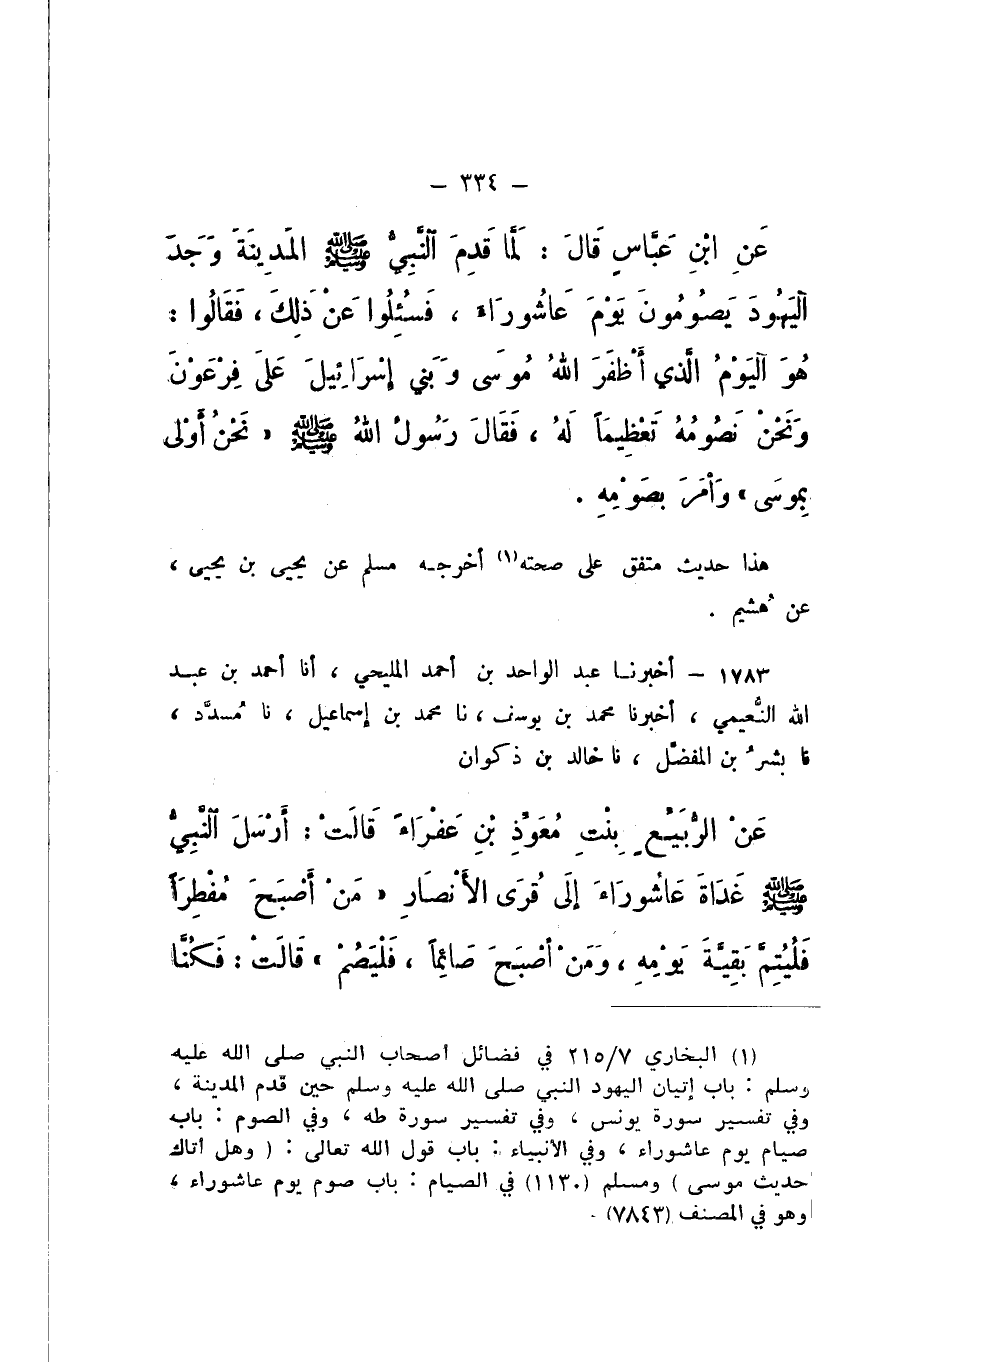 – ٣٣٤ –
عَنِ ابْنِ عَبَّاسٍ قَالَ : لَمَّا قَدِمَ ٱلنَّبِيُّ ﷺ المَدِينَةَ وَجَدَ
ٱلْيَهُودَ يَصُومُونَ يَوْمَ عَاشُورَاءَ ، فَسُئِلُوا عَنْ ذَلِكَ ، فَقَالُوا :
هُوَ ٱلْيَوْمُ الَّذِي أَظْفَرَ اللهُ مُوسَى وَبَنِي إِسْرَائِيلَ عَلَى فِرْعَوْنَ
وَنَحْنُ نَصُومُهُ تَعْظِيمَاً لَهُ ، فَقَالَ رَسُولُ اللهُ ﷺ « نَحْنُ أَوْلَى
بِمُوسَى » وَأَمَرَ بِصَوْمِهِ .
هذا حديث متفق على صحته(١) أخرجه مسلم عن يحيى بن يحيى ،
عن هُشيم .
١٧٨٣ – أخبرنا عبد الواحد بن أحمد المليحي ، أنا أحمد بن عبد
الله النُّعيمي ، أخبرنا محمد بن يوسف ، نا محمد بن إسماعيل ، نا مُسدَّد ،
نا بشرُ بن المفضَّل ، نا خالد بن ذكوان
عَنْ الرُّبَيِّعِ بِنْتِ مُعَوِّذِ بْنِ عَفْرَاءَ قَالَتْ : أَرْسَلَ ٱلنَّبِيُّ
ﷺ غَدَاةَ عَاشُورَاءَ إِلَى قُرَى الأَنْصَارِ « مَنْ أَصْبَحَ مُفْطِرَاً
فَلْيُتِمَّ بَقِيَّةَ يَوْمِهِ ، وَمَنْ أَصْبَحَ صَائِمَاً ، فَلْيَصُمْ » قَالَتْ : فَكُنَّا
(١) البخاري ٢١٥/٧ في فضائل أصحاب النبي صلى الله عليه
وسلم : باب إتيان اليهود النبي صلى الله عليه وسلم حين قدم المدينة ،
وفي تفسير سورة يونس ، وفي تفسير سورة طه ، وفي الصوم : باب
صيام يوم عاشوراء ، وفي الأنبياء : باب قول الله تعالى : ( وهل أتاك
حديث موسى ) ومسلم (١١٣٠) في الصيام : باب صوم يوم عاشوراء ،
وهو في المصنف (٧٨٤٣) .